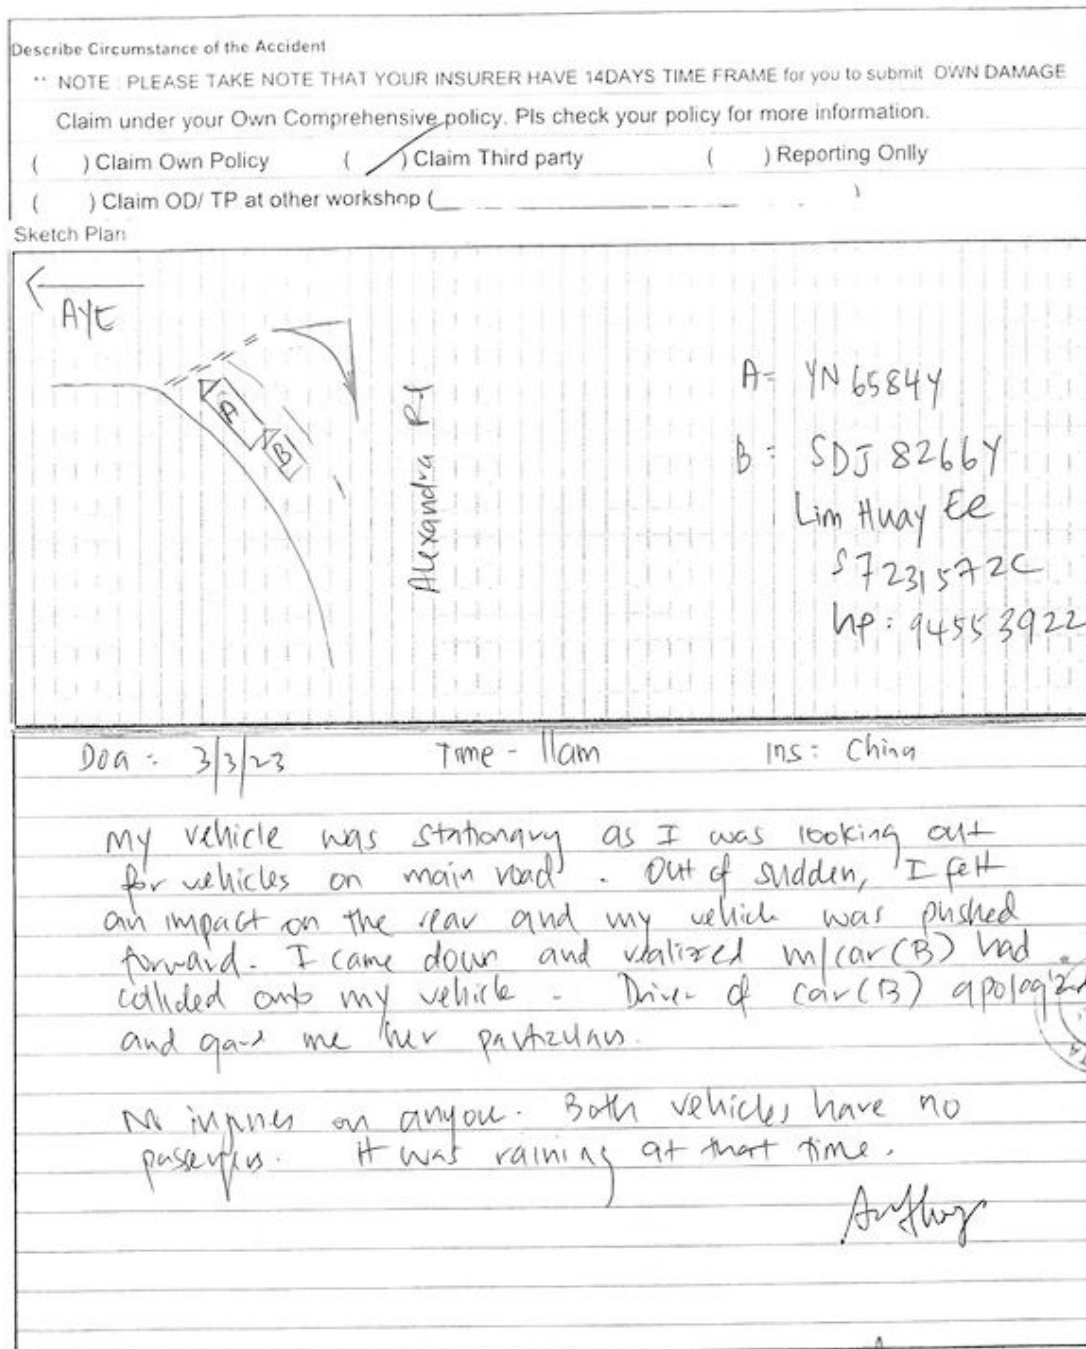 Describe Circumstance of the Accident
** NOTE : PLEASE TAKE NOTE THAT YOUR INSURER HAVE 14DAYS TIME FRAME for you to submit OWN DAMAGE
Claim under your Own Comprehensive policy. Pls check your policy for more information.
( ) Claim Own Policy ( / ) Claim Third party ( ) Reporting Onlly
( ) Claim OD/ TP at other workshop ( )
Sketch Plan
AYE
A
B
Alexandra Rd
A= YN6584Y
B: SDJ 8266Y
Lim Huay Ee
S7231572C
hp: 94553922
DOA: 3/3/23 Time - 11am Ins: China
my vehicle was stationary as I was looking out
for vehicles on main road. Out of sudden, I felt
an impact on the rear and my vehicle was pushed
forward. I came down and realized m/car(B) had
collided onto my vehicle. Driver of car(B) apologized
and gave me her particulars.
No injuries on anyone. Both vehicles have no
passengers. It was raining at that time.